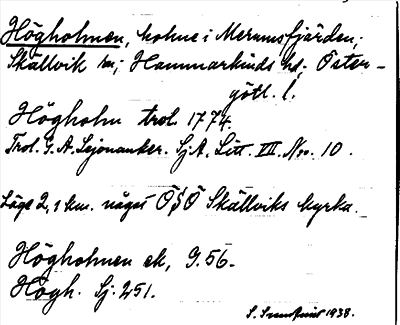 Högholmen, holme i Merumsfjärden;
Skällvik sn; Hammarkinds hd; Öster-
götl. l.
Högholm trol. 1774.
Trol. G. A. Lejonanker. SjA, Litt. VII. No. 10.
Läge 2,1 km. något ÖSÖ Skällviks kyrka.
Högholmen ek, G. 56.
Högh. Sj: 251.
S. 1938.